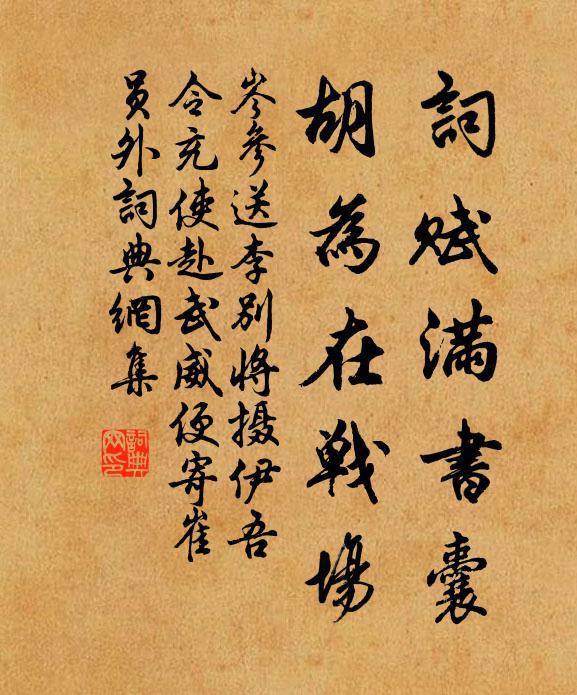 詞賦滿書囊
胡為在戰場
岑參送李別將摄伊吾
令充使赴武威便寄崔
員外詞典網集
詞典网印